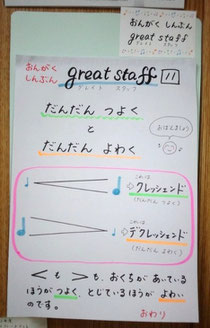 おんがく しんぶん
great staff
グレイト スタッフ
おんがく
しんぶん
great staff 11
グレイト スタッフ
だんだん つよく
と
だんだん よわく
これは
クレッシェンド
(だんだん つよく)
これは
デクレッシェンド
(だんだん よわく)
< も > も、おくちが あいている
ほうが つよく、とじているほうが よわい
のです。
おわり